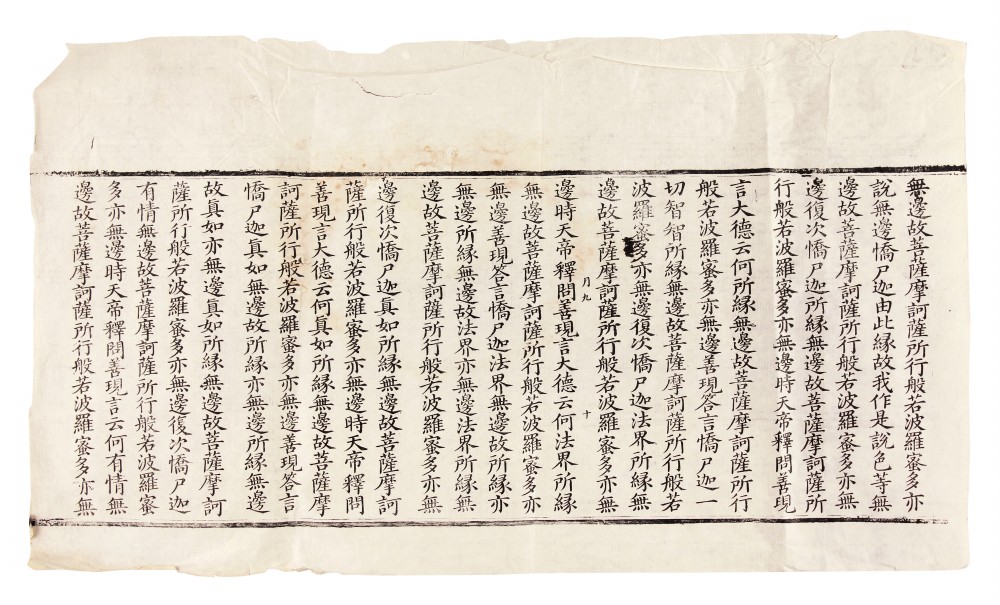 無邊故菩薩摩訶薩所行般若波羅蜜多亦
說無邊憍尸迦由此緣故我作是說色等無
邊故菩薩摩訶薩所行般若波羅蜜多亦無
邊復次憍尸迦所緣無邊故菩薩摩訶薩所
行般若波羅蜜多亦無邊時天帝釋問善現
言大德云何所緣無邊故菩薩摩訶薩所行
般若波羅蜜多亦無邊善現答言憍尸迦一
切智智所緣無邊故菩薩摩訶薩所行般若
波羅蜜多亦無邊復次憍尸迦法界所緣無
邊故菩薩摩訶薩所行般若波羅蜜多亦無
月九 十
邊時天帝釋問善現言大德云何法界所緣
無邊故菩薩摩訶薩所行般若波羅蜜多亦
無邊善現答言憍尸迦法界無邊故所緣亦
無邊所緣無邊故法界亦無邊法界所緣無
邊故菩薩摩訶薩所行般若波羅蜜多亦無
邊復次憍尸迦真如所緣無邊故菩薩摩訶
薩所行般若波羅蜜多亦無邊時天帝釋問
善現言大德云何真如所緣無邊故菩薩摩
訶薩所行般若波羅蜜多亦無邊善現答言
憍尸迦真如無邊故所緣亦無邊所緣無邊
故真如亦無邊真如所緣無邊故菩薩摩訶
薩所行般若波羅蜜多亦無邊復次憍尸迦
有情無邊故菩薩摩訶薩所行般若波羅蜜
多亦無邊時天帝釋問善現言云何有情無
邊故菩薩摩訶薩所行般若波羅蜜多亦無